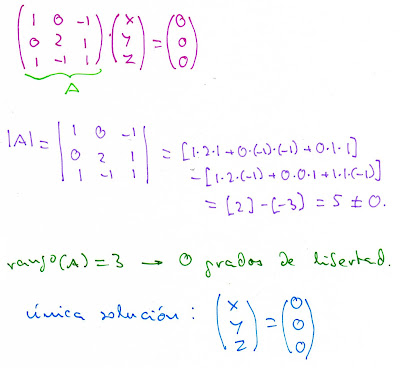 ( 1 0 -1 ; 0 2 1 ; 1 -1 1 ) · ( x ; y ; z ) = ( 0 ; 0 ; 0 )
A
|A| = | 1 0 -1 ; 0 2 1 ; 1 -1 1 | = [1·2·1+0·(-1)·(-1)+0·1·1]
-[1·2·(-1)+0·0·1+1·1·(-1)]
= [2]-[-3) = 5 ≠ 0.
rango(A)=3 → 0 grados de libertad.
única solución: ( x ; y ; z ) = ( 0 ; 0 ; 0 )